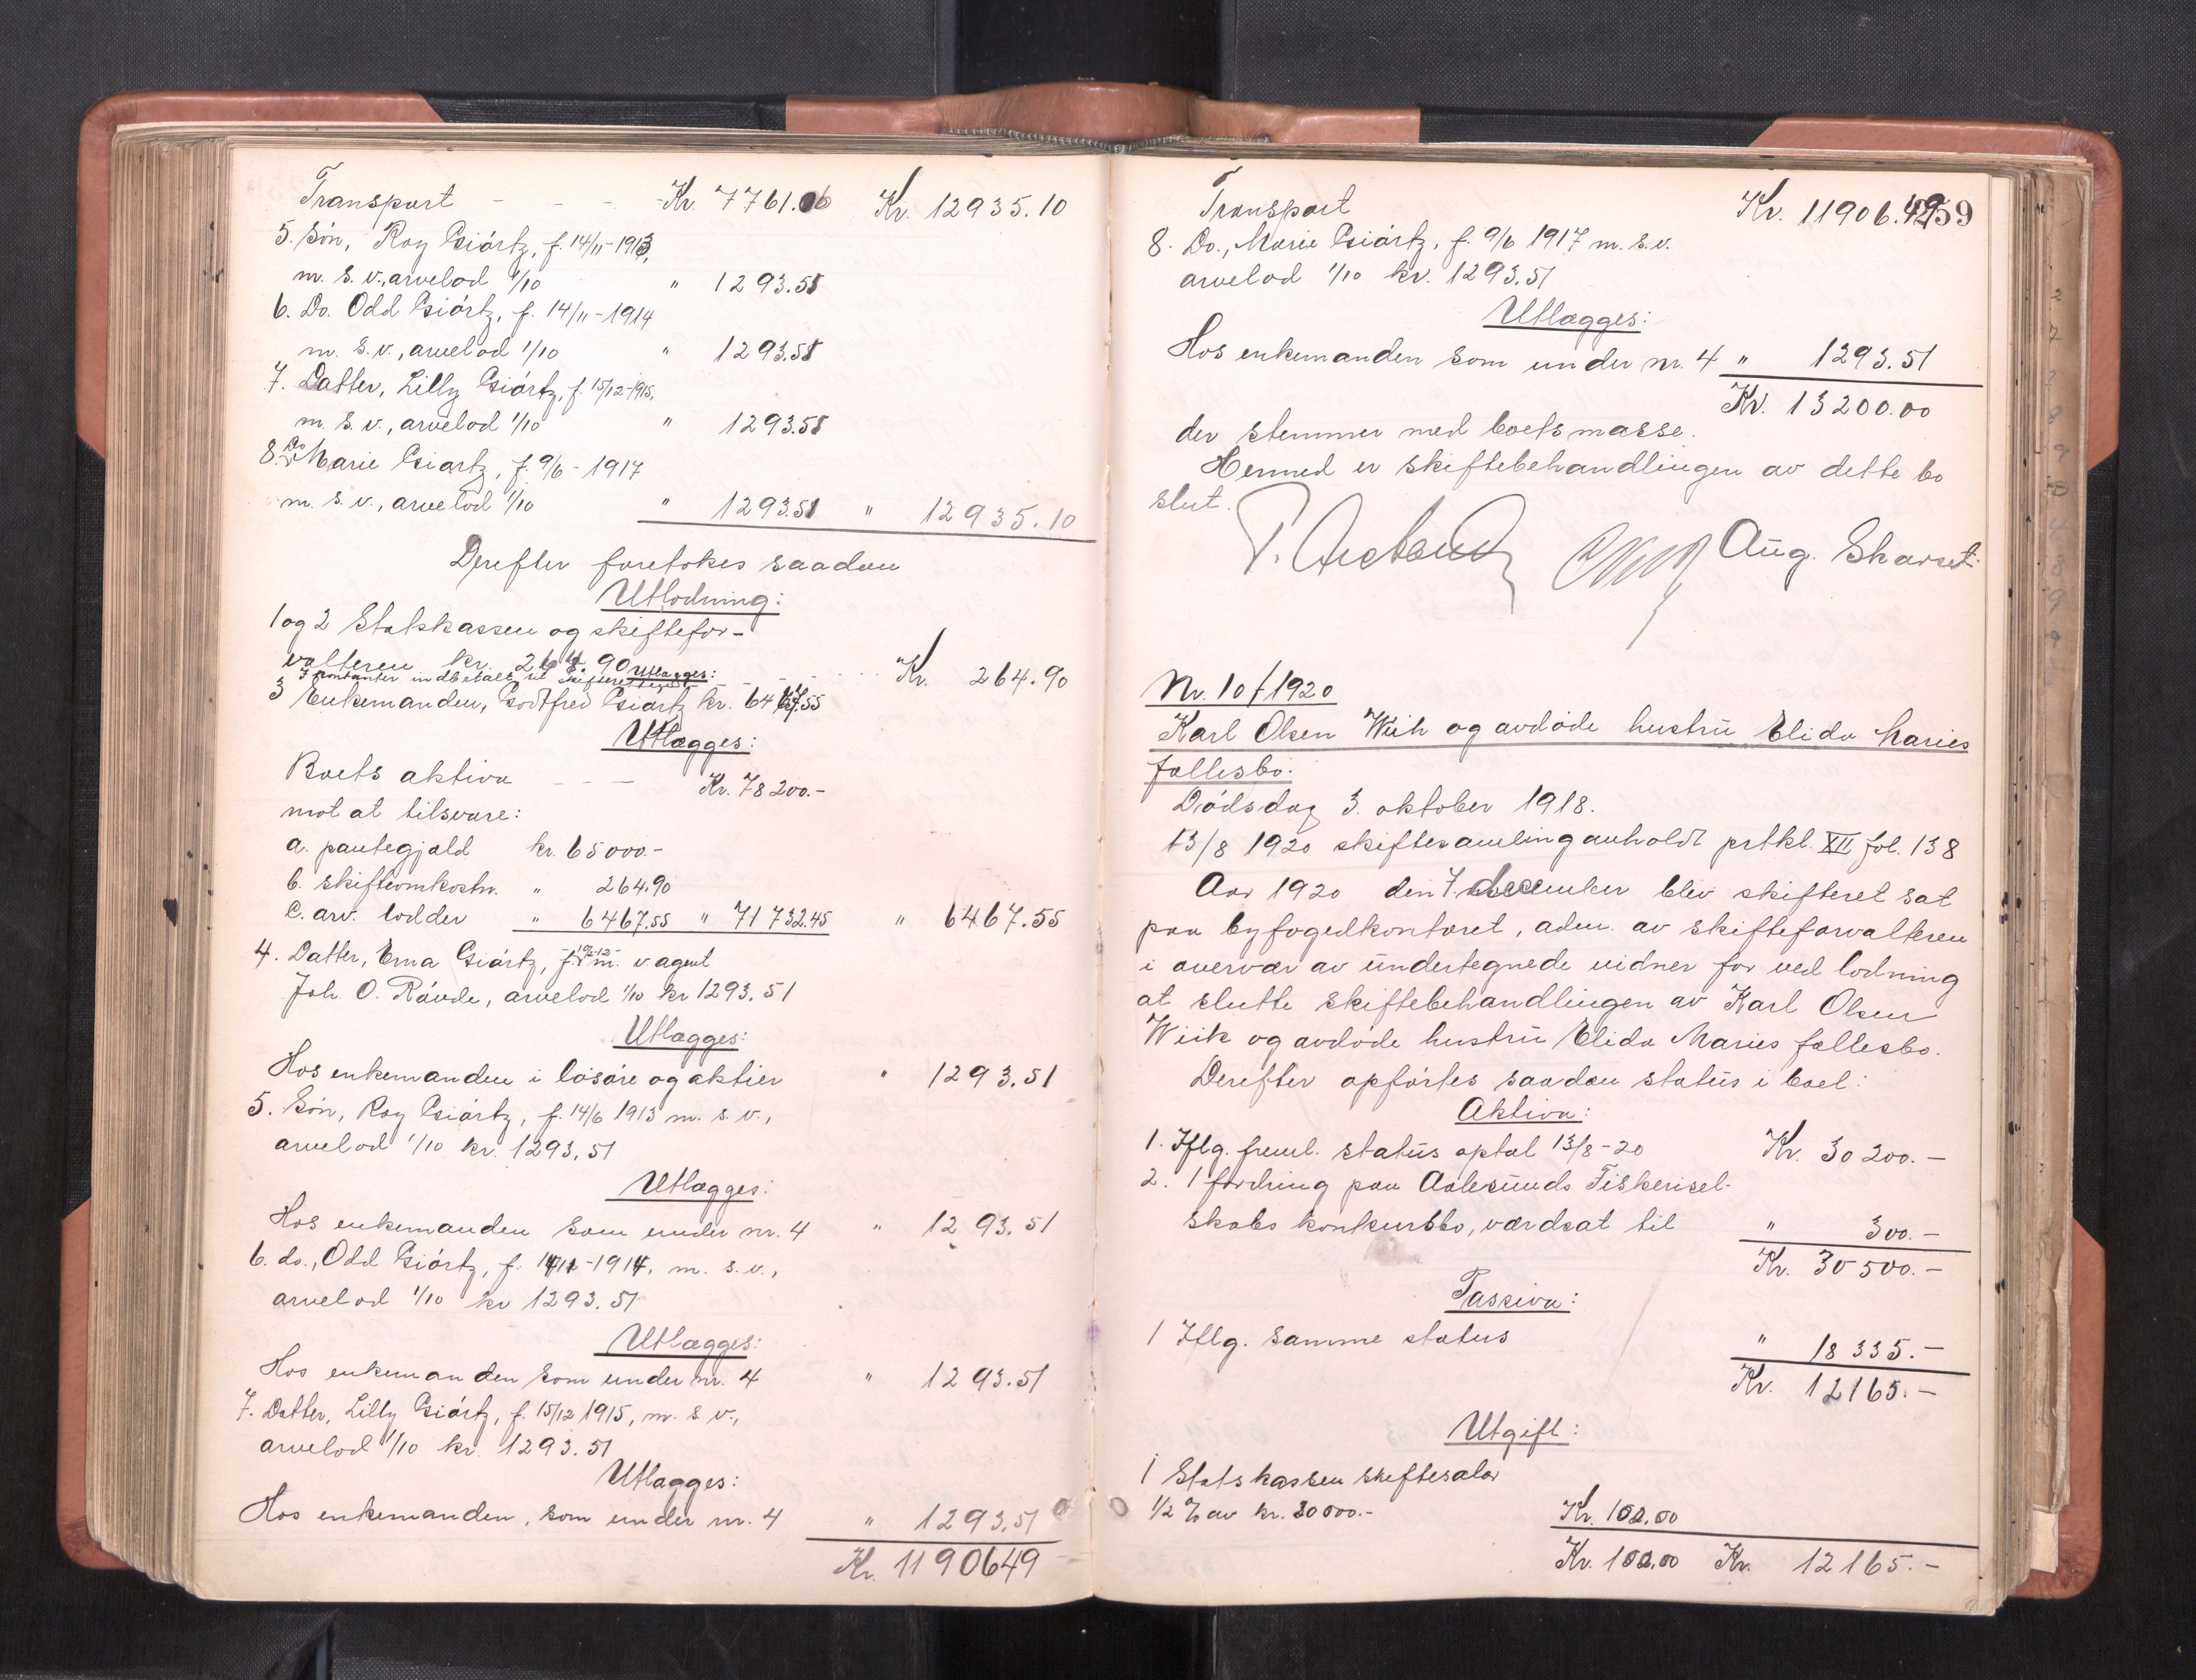 Transport - - - Kr. 7761.06 Kr. 12935.10
5. Søn, Roy Giørtz, f. 14/11-1913,
m. s. v., arvelod 1/10 " 1293.51
6. Do. Odd Giørtz, f. 14/11-1914
m. s. v., arvelod 1/10 " 1293.51
7. Datter, Lilly Giørtz, f. 15/12-1915,
m. s. v., arvelod 1/10 " 1293.51
8. Do Marie Giørtz, f. 9/6-1917
m. s. v., arvelod 1/10 " 1293.51 " 12935.10
Derefter foretokes saadan
Utlodning:
1 og 2 Statskassen og skiftefor-
valteren kr. 264.90 Utlægges:
I kontanter indbetalt til skifteretten - - - Kr. 264.90
3 Enkemanden, Godtfred Giørtz kr. 6467.55
Utlægges:
Boets aktiva - - - Kr. 78200.-
mot at tilsvare:
a. pantegjæld kr. 65000.-
b. skifteomkostn. " 264.90
c. arv. lodder " 6467.55 " 71732.45 " 6467.55
4. Datter, Erna Giørtz, g. m. agent
Joh. O. Røvde, arvelod 1/10 kr 1293.51
Utlægges:
Hos enkemanden i løsøre og aktier " 1293.51
5. Søn, Roy Giørtz, f. 14/6 1913 m. s. v.,
arvelod 1/10 kr. 1293.51
Utlægges:
Hos enkemanden som under nr. 4 " 1293.51
6. do., Odd Giørtz, f. 14/11-1914, m. s. v.,
arvelod 1/10 kr 1293.51
Utlægges:
Hos enkemanden som under nr. 4 " 1293.51
7. Datter, Lilly Giørtz, f. 15/12 1915, m. s. v.,
arvelod 1/10 kr. 1293.51
Utlægges:
Hos enkemanden, som under nr. 4 " 1293.51
Kr. 1190649
59
Transport Kr. 11906.49
8. Do., Marie Giørtz, f. 9/6 1917 m. s. v.
arvelod 1/10 kr. 1293.51
Utlægges:
Hos enkemanden som under nr. 4 " 1293.51
Kr. 13200.00
der stemmer med boets masse.
Hermed er skiftebehandlingen av dette bo
slut.
Aug. Skarset.
Nr. 10/1920
Karl Olsen Wiik og avdøde hustru Elida Maries
fællesbo.
Dødsdag 3. oktober 1918.
13/8 1920 skiftesamling anholdt prtkl. XII fol. 138
Aar 1920 den 7. december blev skifteret sat
paa byfogedkontoret, adm. av skifteforvalteren
i overvær av undertegnede vidner for ved lodning
at slutte skiftebehandlingen av Karl Olsen
Wiik og avdøde hustru Elida Maries fællesbo.
Derefter opførtes saadan status i boet:
Aktiva:
1. Iflg. freml. status optat 13/8-20 Kr. 30200.-
2. 1 fordring paa Aalesunds Fiskerisel-
skabs konkursbo, værdsat til " 300.-
Kr. 30500.-
Passiva:
1 Iflg. samme status " 18335.-
Kr. 12165.-
Utgift:
1 Statskassen skiftesalær
1/2 % av kr. 30000.- Kr. 102.00
Kr. 102.00 Kr. 12165.-